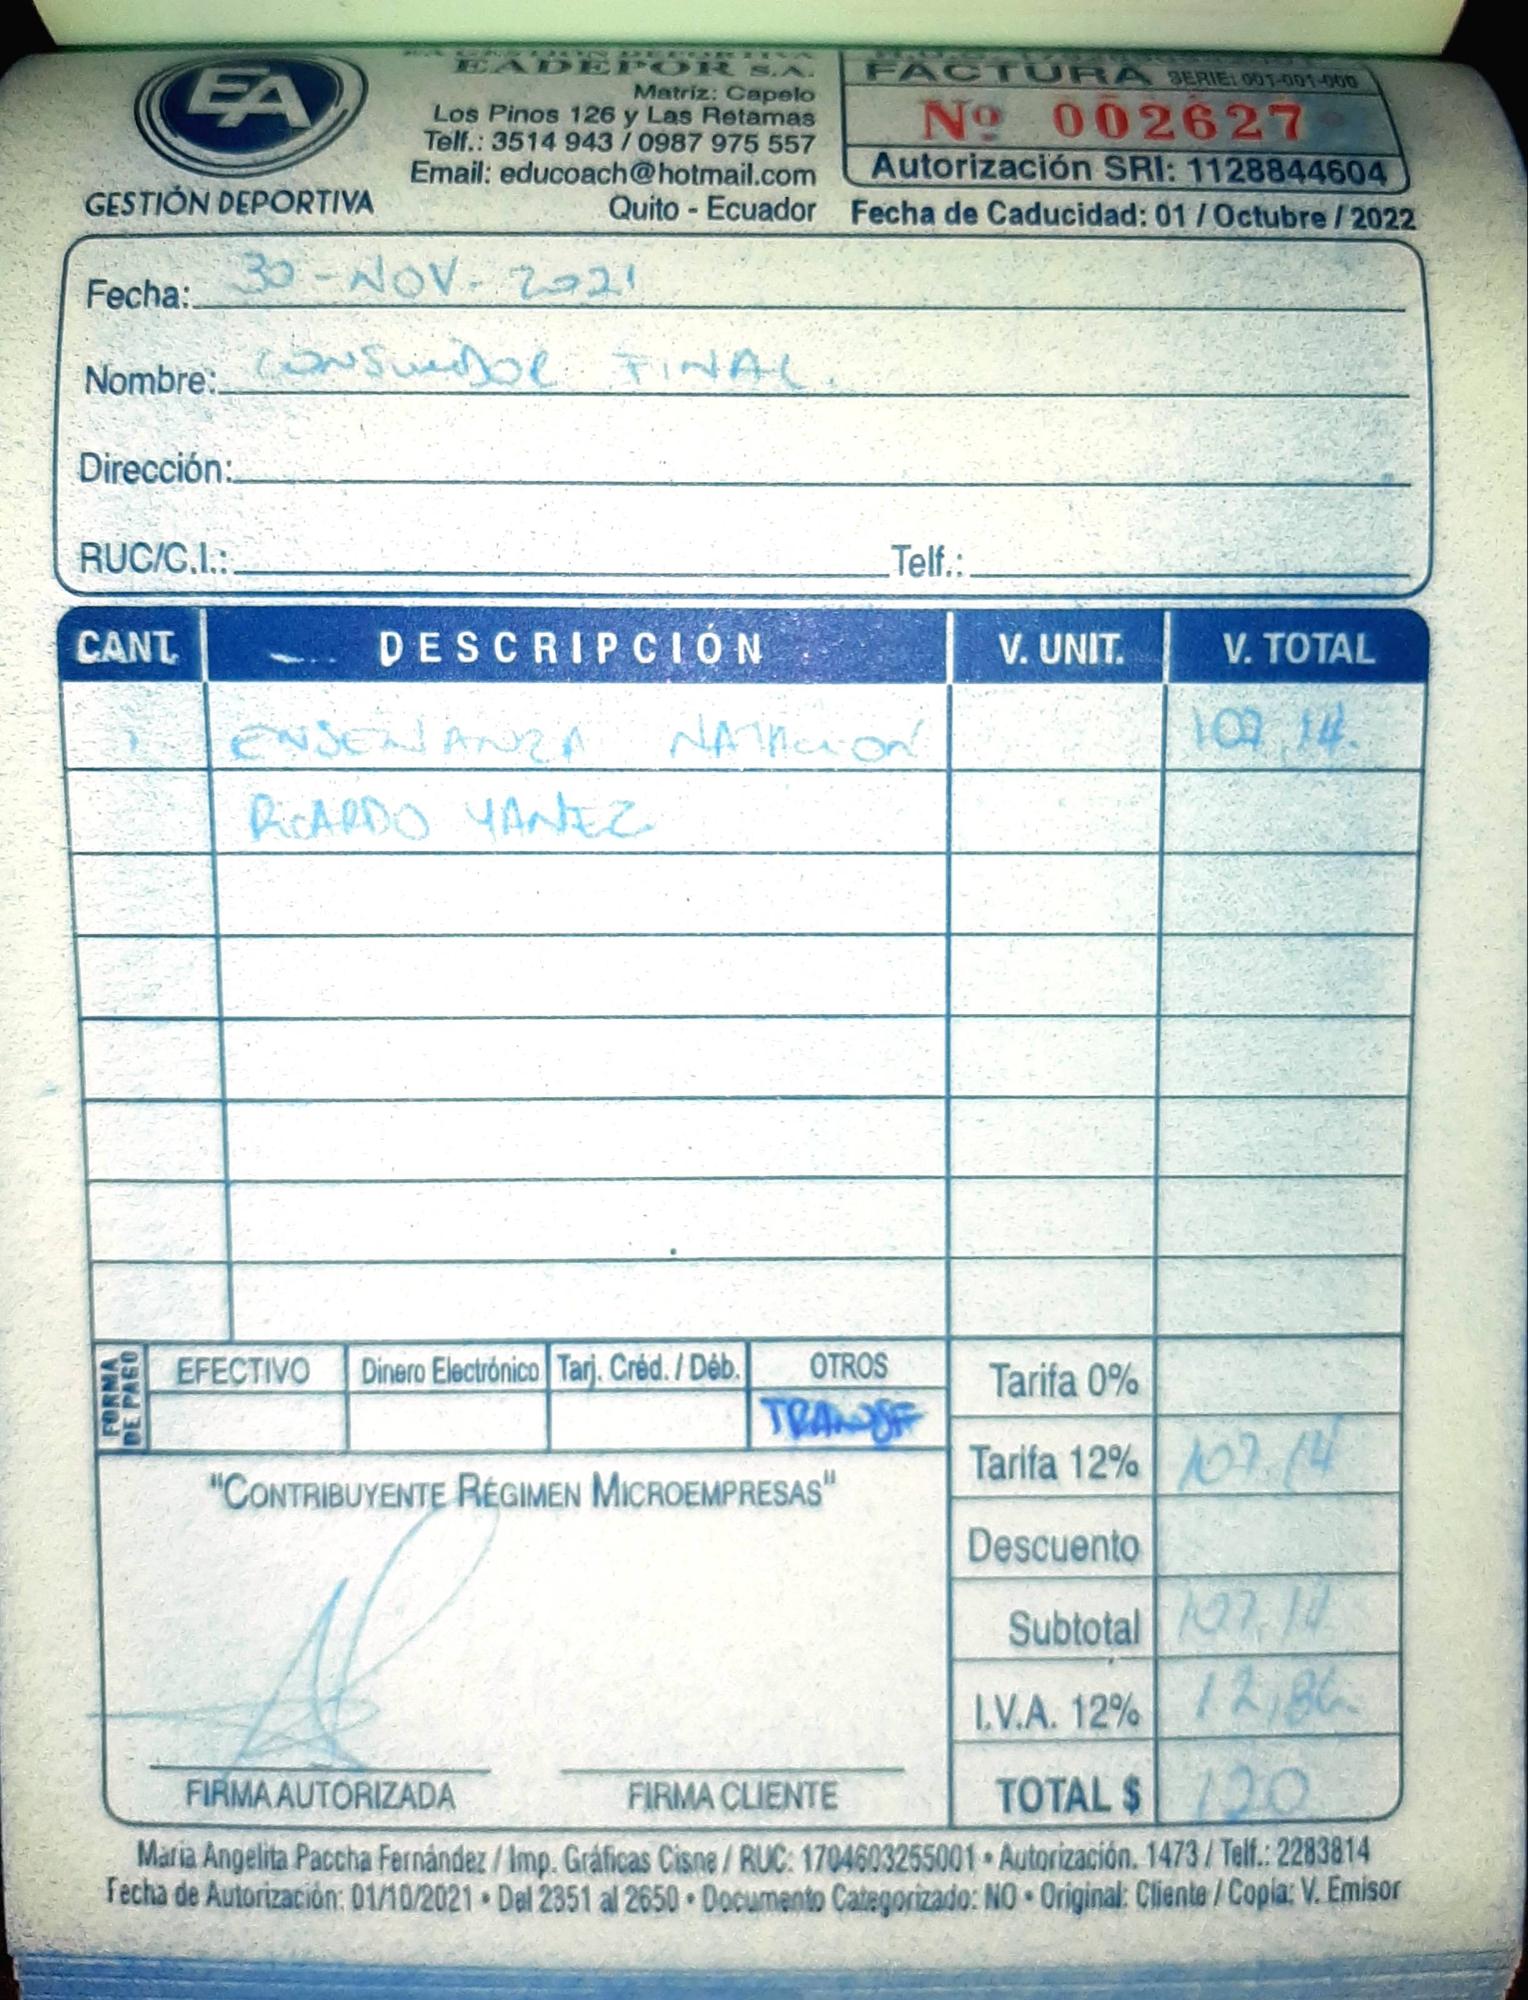 EA
GESTIÓN DEPORTIVA
EA GESTIÓN DEPORTIVA
EADEPOR S.A.
Matriz: Capelo
Los Pinos 126 y Las Retamas
Telf.: 3514 943 / 0987 975 557
Email: educoach@hotmail.com
Quito - Ecuador
FACTURA SERIE: 001-001-000
Nº 002627
Autorización SRI: 1128844604
Fecha de Caducidad: 01 / Octubre / 2022
Fecha: 30 - NOV. - 2021
Nombre: CONSUMIDOR FINAL.
Dirección:
RUC/C.I.: Telf.:
CANT. DESCRIPCIÓN V. UNIT. V. TOTAL
ENSEÑANZA NATACION 107,14.
RICARDO YANEZ
FORMA DE PAGO EFECTIVO Dinero Electrónico Tarj. Créd. / Déb. OTROS
TRANSF
Tarifa 0%
Tarifa 12% 107.14
Descuento
Subtotal 107.14
I.V.A. 12% 12,86
TOTAL $ 120
"CONTRIBUYENTE RÉGIMEN MICROEMPRESAS"
FIRMA AUTORIZADA FIRMA CLIENTE
María Angelita Paccha Fernández / Imp. Gráficas Cisne / RUC: 1704603255001 • Autorización. 1473 / Telf.: 2283814
Fecha de Autorización: 01/10/2021 • Del 2351 al 2650 • Documento Categorizado: NO • Original: Cliente / Copia: V. Emisor